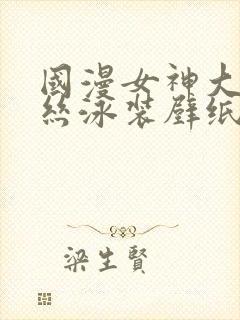 國漫女神大
丝泳装壁纸
梁生賢